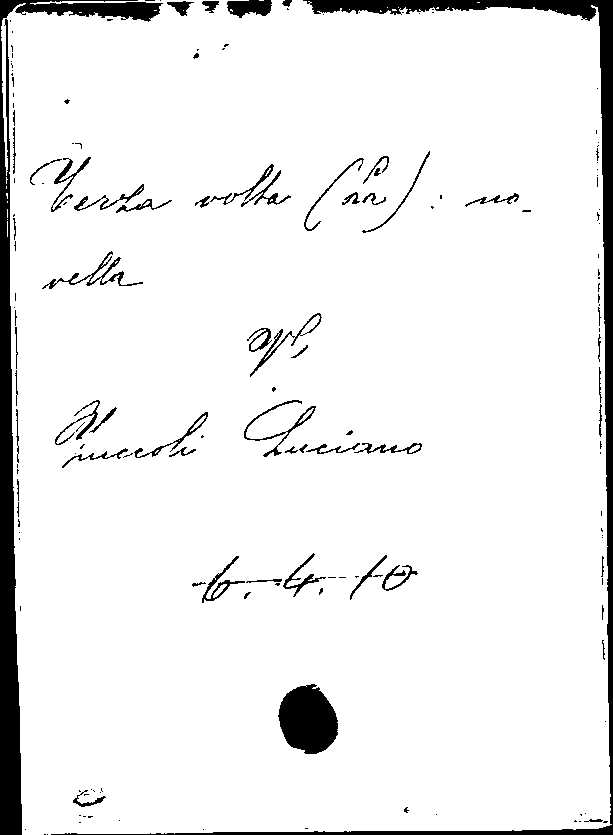 Terza volta (La) : no-
vella
V.
Zuccoli Luciano
6.4.10